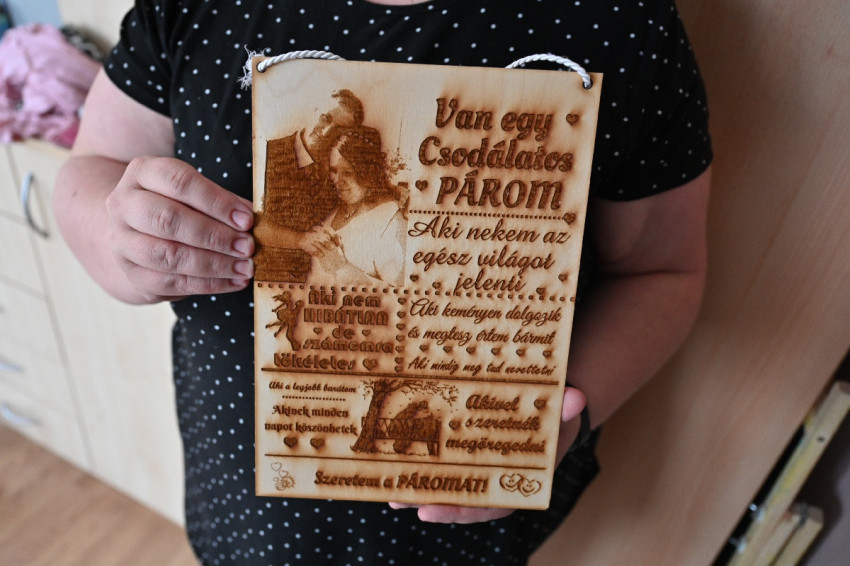 Van egy
Csodálatos
PÁROM
Aki nekem az
egész világot
jelenti
Aki nem
HIBÁTLAN
de
számomra
tökéletes
Aki keményen dolgozik
és megtesz értem bármit
Aki mindig meg tud nevettetni
Aki a legjobb barátom
Akinek minden
napot köszönhetek
Akivel
szeretnék
megöregedni
Szeretem a PÁROMAT!